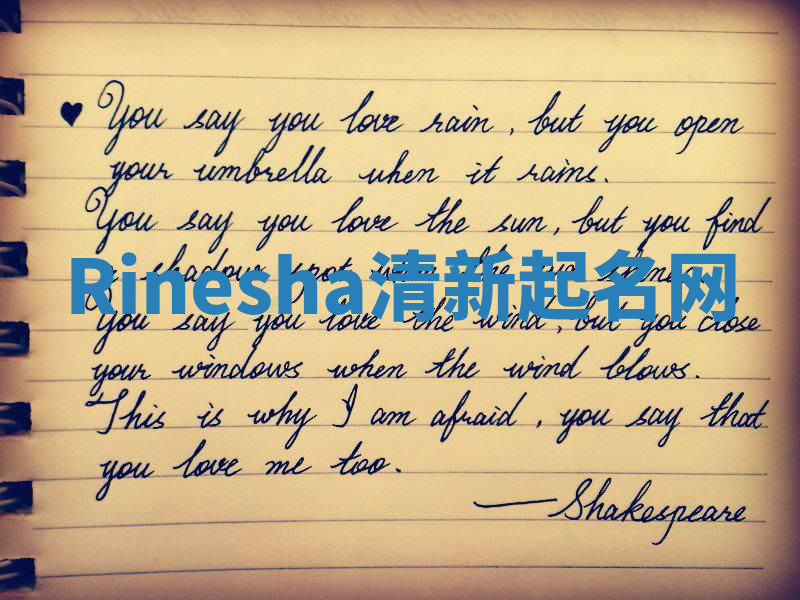 ♥ You say you love rain, but you open
your umbrella when it rains.
You say you love the sun, but you find
a shadow spot when the sun shines.
Rinesha清新起名网
You say you love the wind, but you close
your windows when the wind blows.
This is why I am afraid, you say that
you love me too.
— Shakespeare